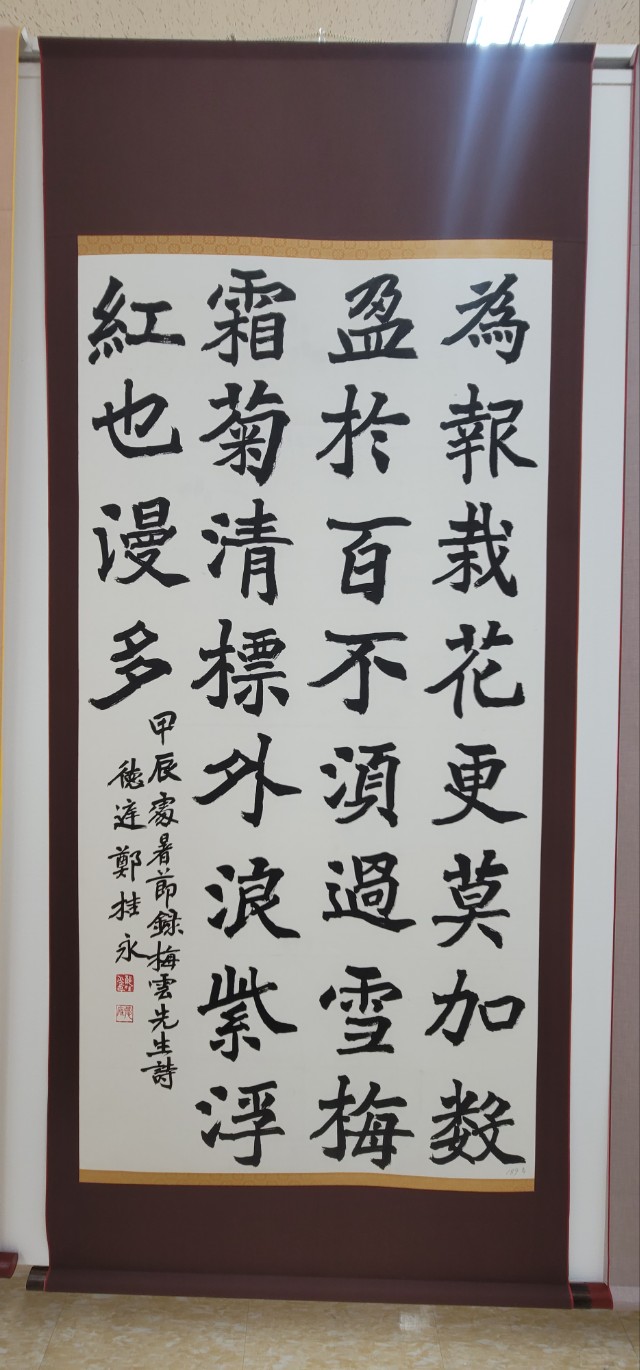 為報栽花更莫加数
盈於百不須過雪梅
霜菊清標外浪紫浮
紅也漫多
甲辰處暑節録梅雲先生詩
德逹鄭桂永